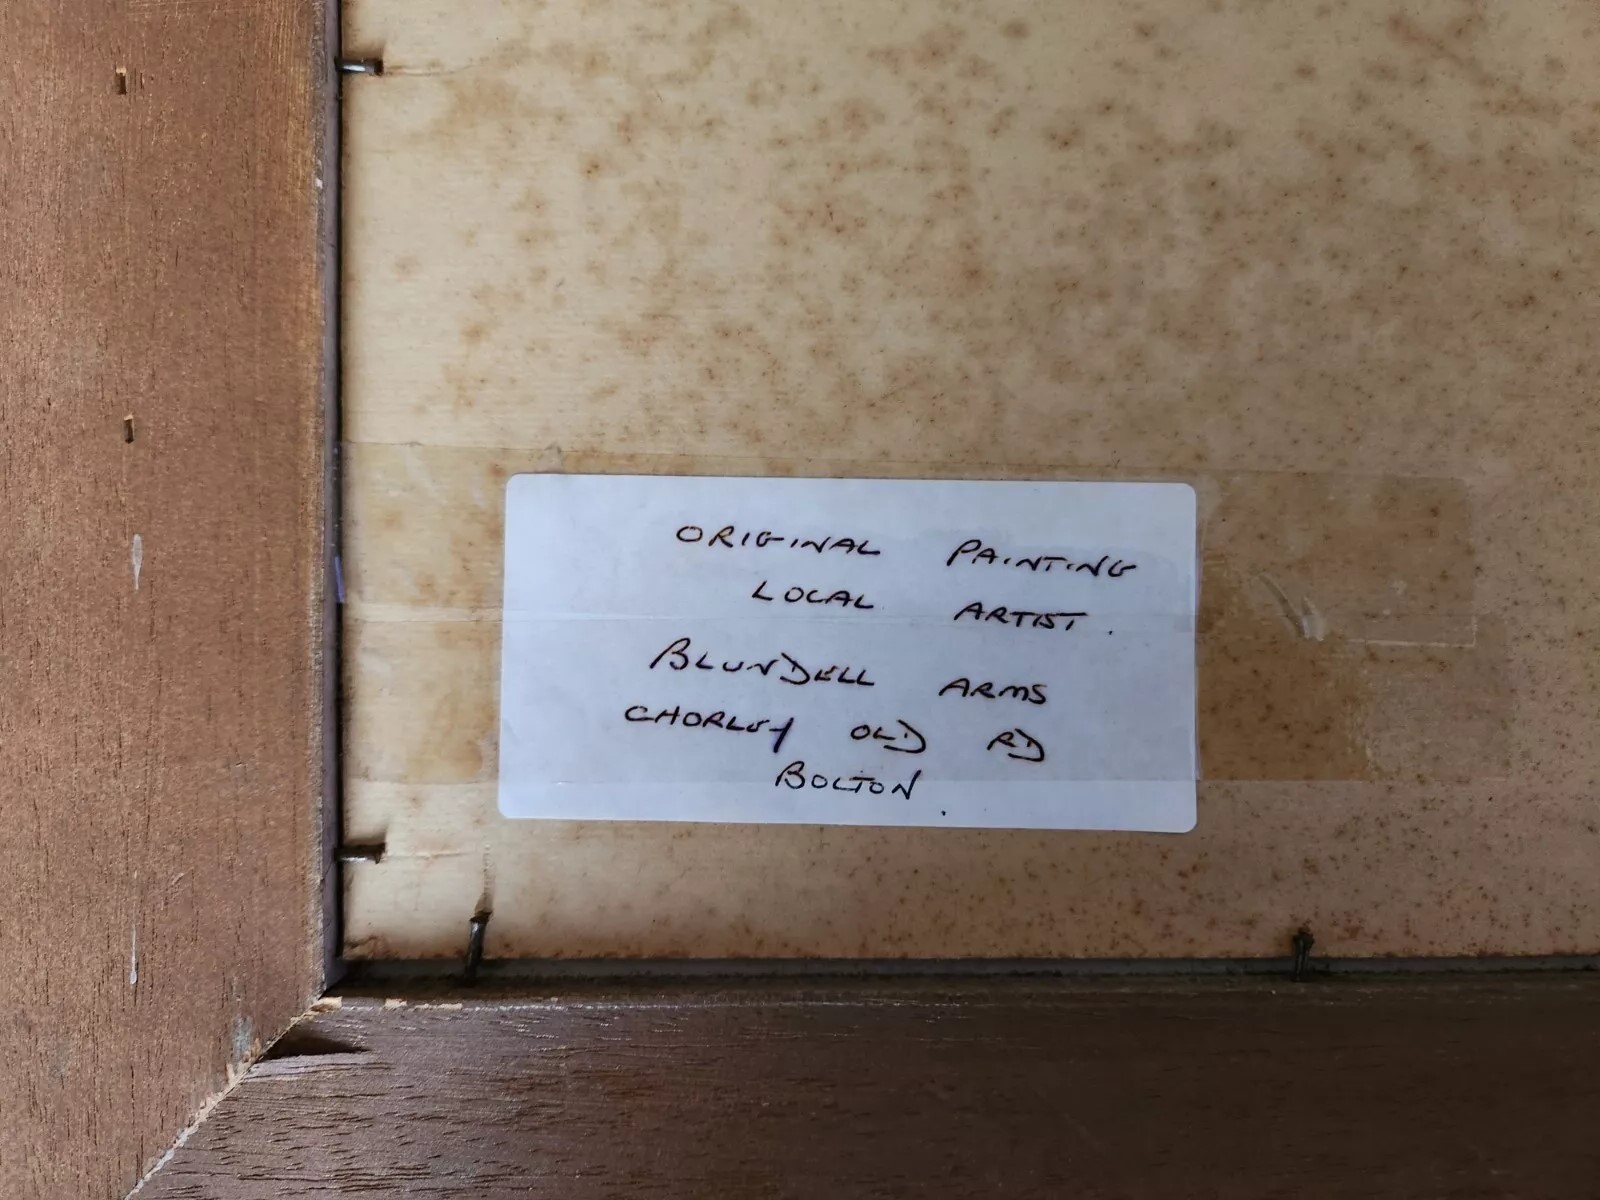 ORIGINAL PAINTING
LOCAL ARTIST.
BLUNDELL ARMS
CHORLEY OLD RD
BOLTON.